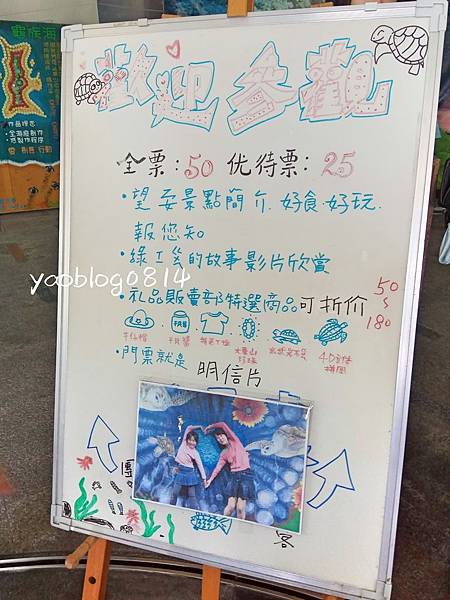 歡迎參觀
全票：50 优待票：25
·望安景點簡介.好食.好玩.
報您知
·綠工坊的故事影片欣賞
·礼品販賣部特選商品可折价 50~180
4D立体拼圖
·門票就是 明信片
團
客
yooblog0814